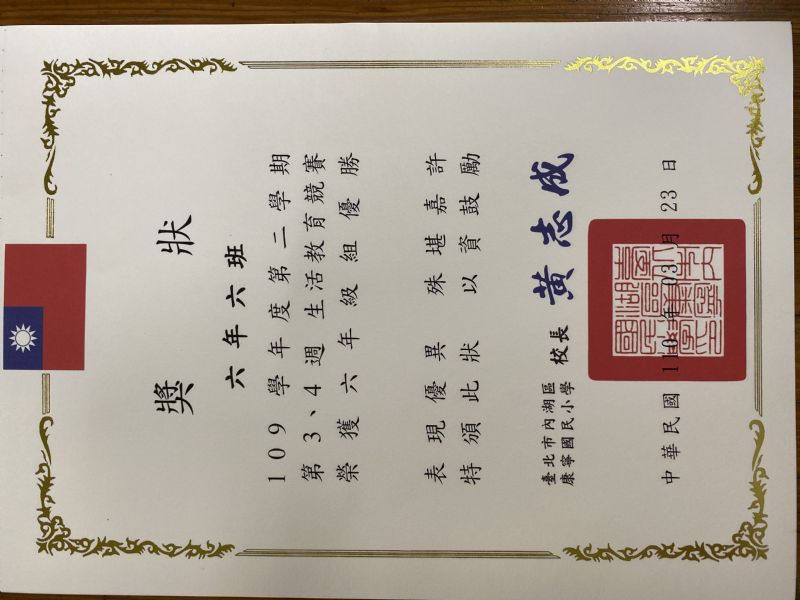 獎狀
六年六班
109學年度第二學期
第3、4週生活教育競賽
榮獲六年級組優勝
表現優異 殊堪嘉許
特頒此狀 以資鼓勵
臺北市內湖區
康寧國民小學 校長 黃志成
中華民國 110 年 03 月 23 日